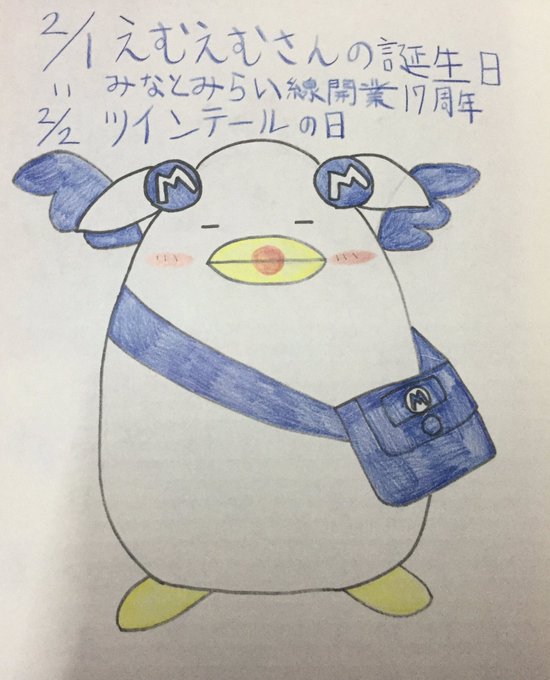 2/1 えむえむさんの誕生日
〃 みなとみらい線開業17周年
2/2 ツインテールの日
M M
M